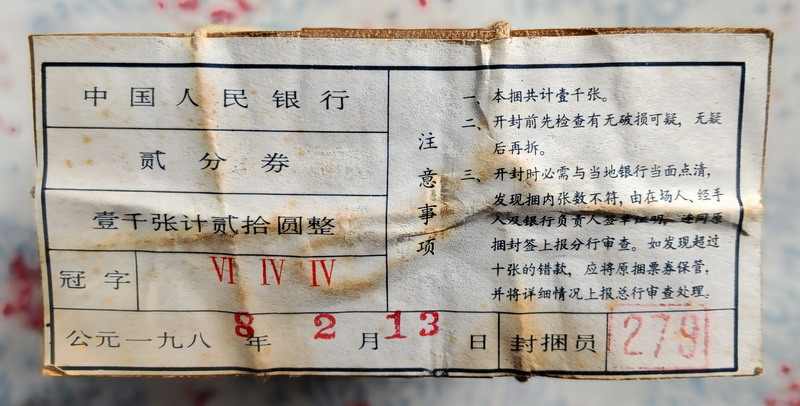 中国人民银行
贰分券
壹千张计贰拾圆整
冠字 VI IV IV
公元一九八8年2月13日 封捆员 279
注意事项
一、本捆共计壹千张。
二、开封前先检查有无破损可疑，无疑
后再拆。
三、开封时必需与当地银行当面点清，
发现捆内张数不符，由在场人、经手
人及银行负责人签章证明，连同原
捆封签上报分行审查。如发现超过
十张的错款，应将原捆票券保管，
并将详细情况上报总行审查处理。